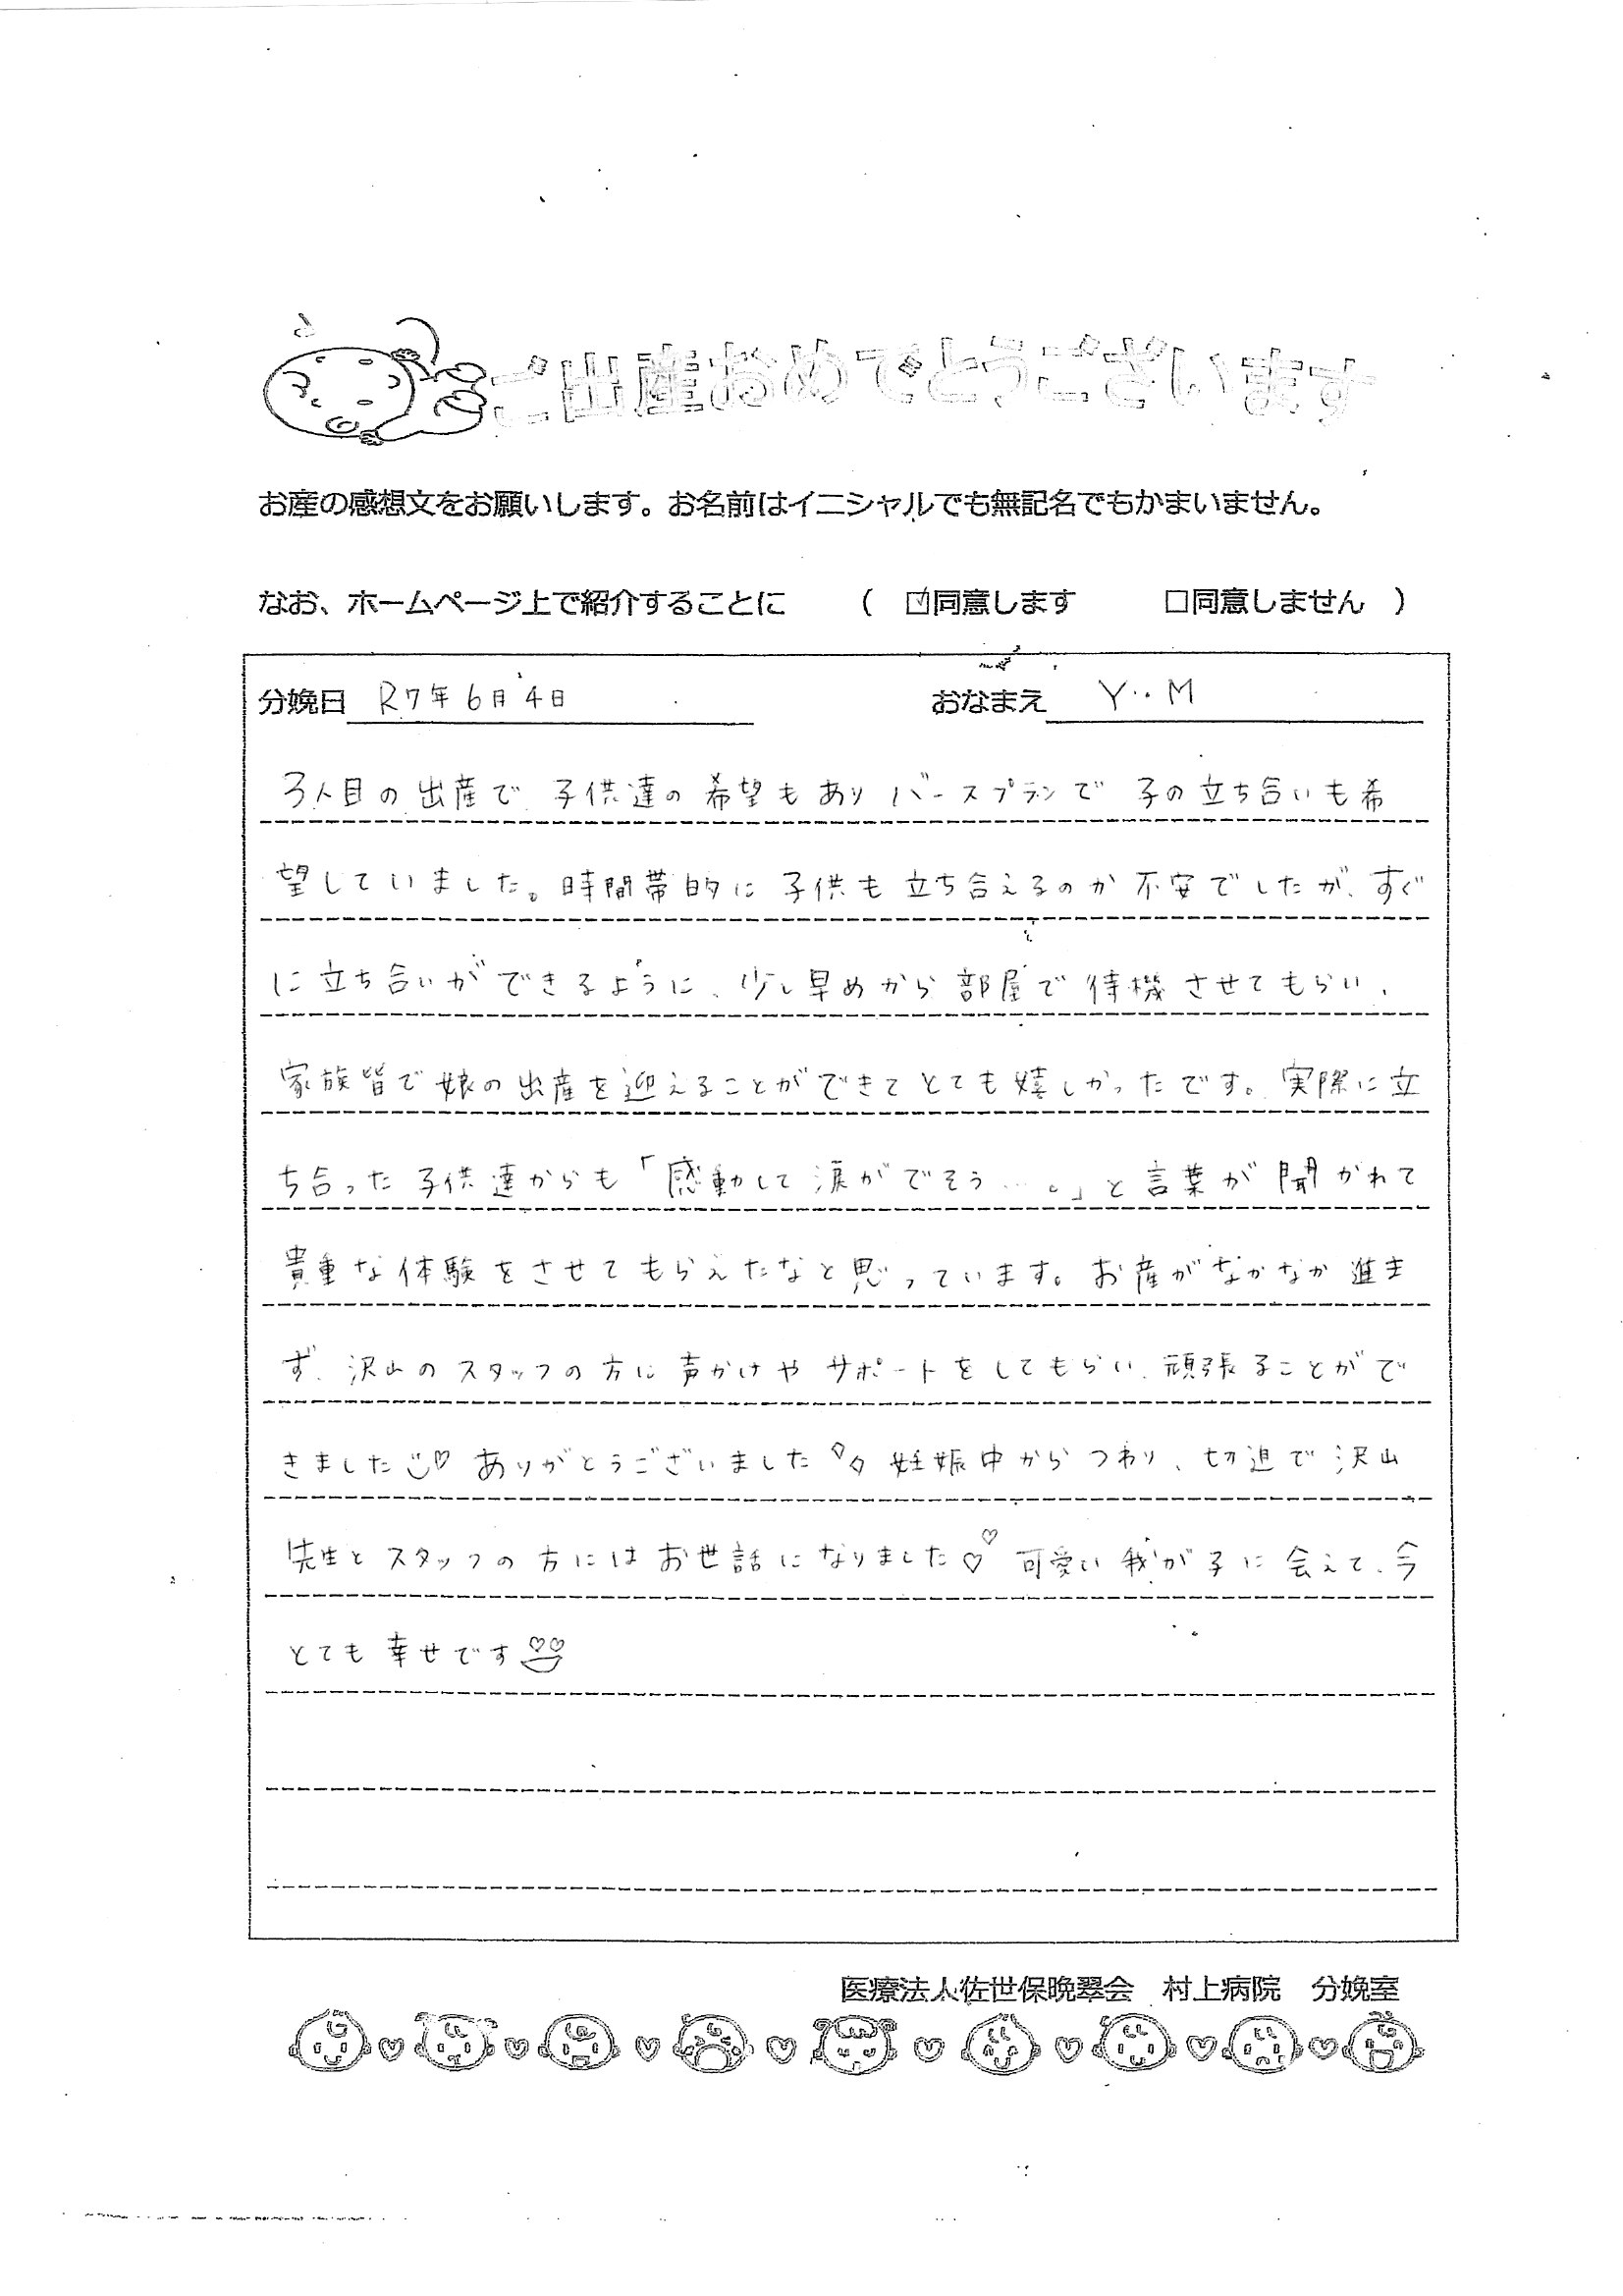 ご出産おめでとうございます
お産の感想文をお願いします。お名前はイニシャルでも無記名でもかまいません。
なお、ホームページ上で紹介することに （ ☑同意します □同意しません ）
分娩日 R7年6月4日 おなまえ Y・M
3人目の出産で、子供達の希望もありバースプランで子の立ち合いも希
望していました。時間帯的に子供も立ち合えるのか不安でしたが、すぐ
に立ち合いができるように、少し早めから部屋で待機させてもらい、
家族皆で娘の出産を迎えることができてとても嬉しかったです。実際に立
ち合った子供達からも「感動して涙がでそう…。」と言葉が聞かれて
貴重な体験をさせてもらえたなと思っています。お産がなかなか進ま
ず、沢山のスタッフの方に声かけやサポートをしてもらい、頑張ることがで
きました♡ ありがとうございました 妊娠中からつわり、切迫で沢山
先生とスタッフの方にはお世話になりました♡♡ 可愛い我が子に会えて、今
とても幸せです
医療法人佐世保晩翠会 村上病院 分娩室